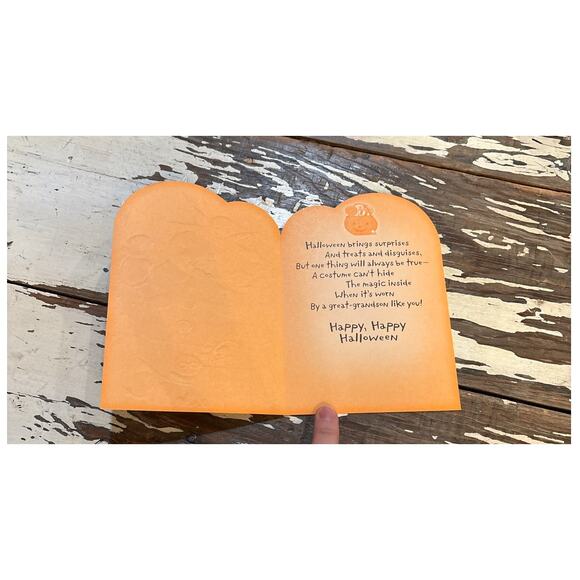 Halloween brings surprises
And treats and disguises,
But one thing will always be true—
A costume can't hide
The magic inside
When it's worn
By a great-grandson like you!
Happy, Happy
Halloween